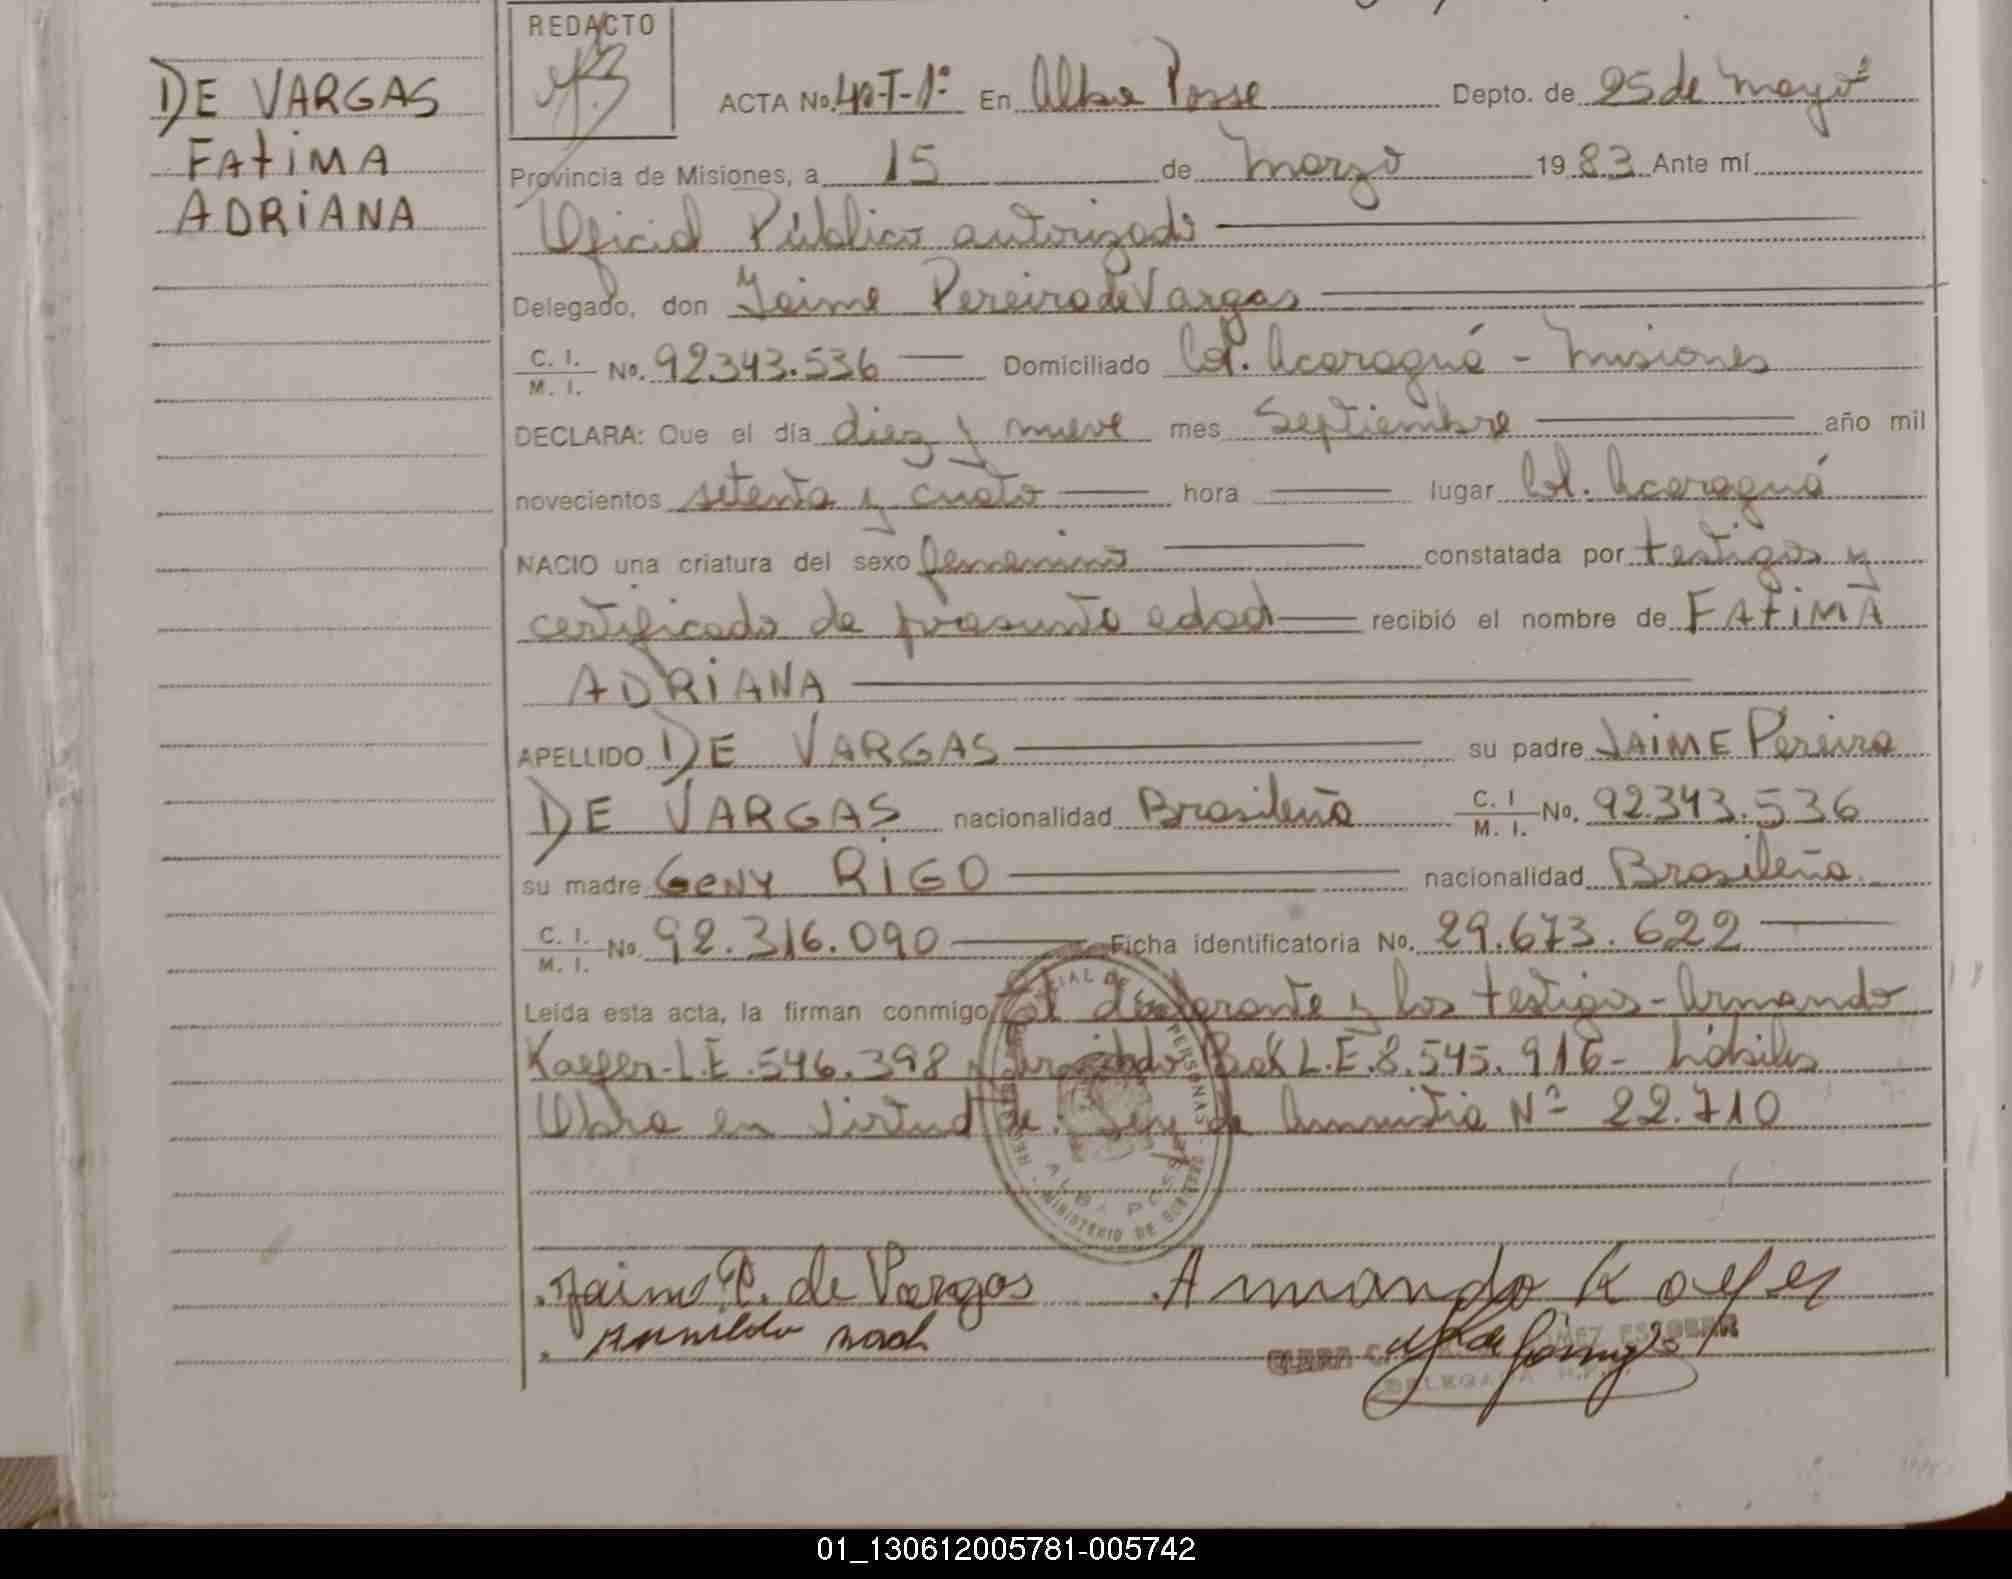 REDACTO
DE VARGAS
FATIMA
ADRIANA
ACTA No. 40-T-1º En Alba Posse Depto. de 25 de Mayo
Provincia de Misiones, a 15 de Marzo 1983 Ante mí
Oficial Público autorizado
Delegado, don Jaime Pereira de Vargas
C. I. / M. I. No. 92343.536 Domiciliado Col. Acaraguá - Misiones
DECLARA: Que el día diez y nueve mes Septiembre año mil
novecientos setenta y cuatro hora lugar Col. Acaraguá
NACIO una criatura del sexo femenino constatada por testigos y
certificado de presunta edad recibió el nombre de FATIMA
ADRIANA
APELLIDO DE VARGAS su padre JAIME Pereira
DE VARGAS nacionalidad Brasileña C. I / M. I. No. 92343.536
su madre GENY RIGO nacionalidad Brasileña
C. I. / M. I. No. 92.316.090 Ficha identificatoria No. 29.673.622
Leída esta acta, la firman conmigo el declarante y los testigos - Armando
Kaefer - L.E. 546.398 y L.E. 8.545.916 - hábiles
Obra en virtud de Ley de Amnistia Nº 22.710
PERSONAS
MINISTERIO DE GOBIERNO
ALBA POSSE
Jaime P. de Vargas Armando Kaefer
ESCOBAR
DELEGADA
01_130612005781-005742